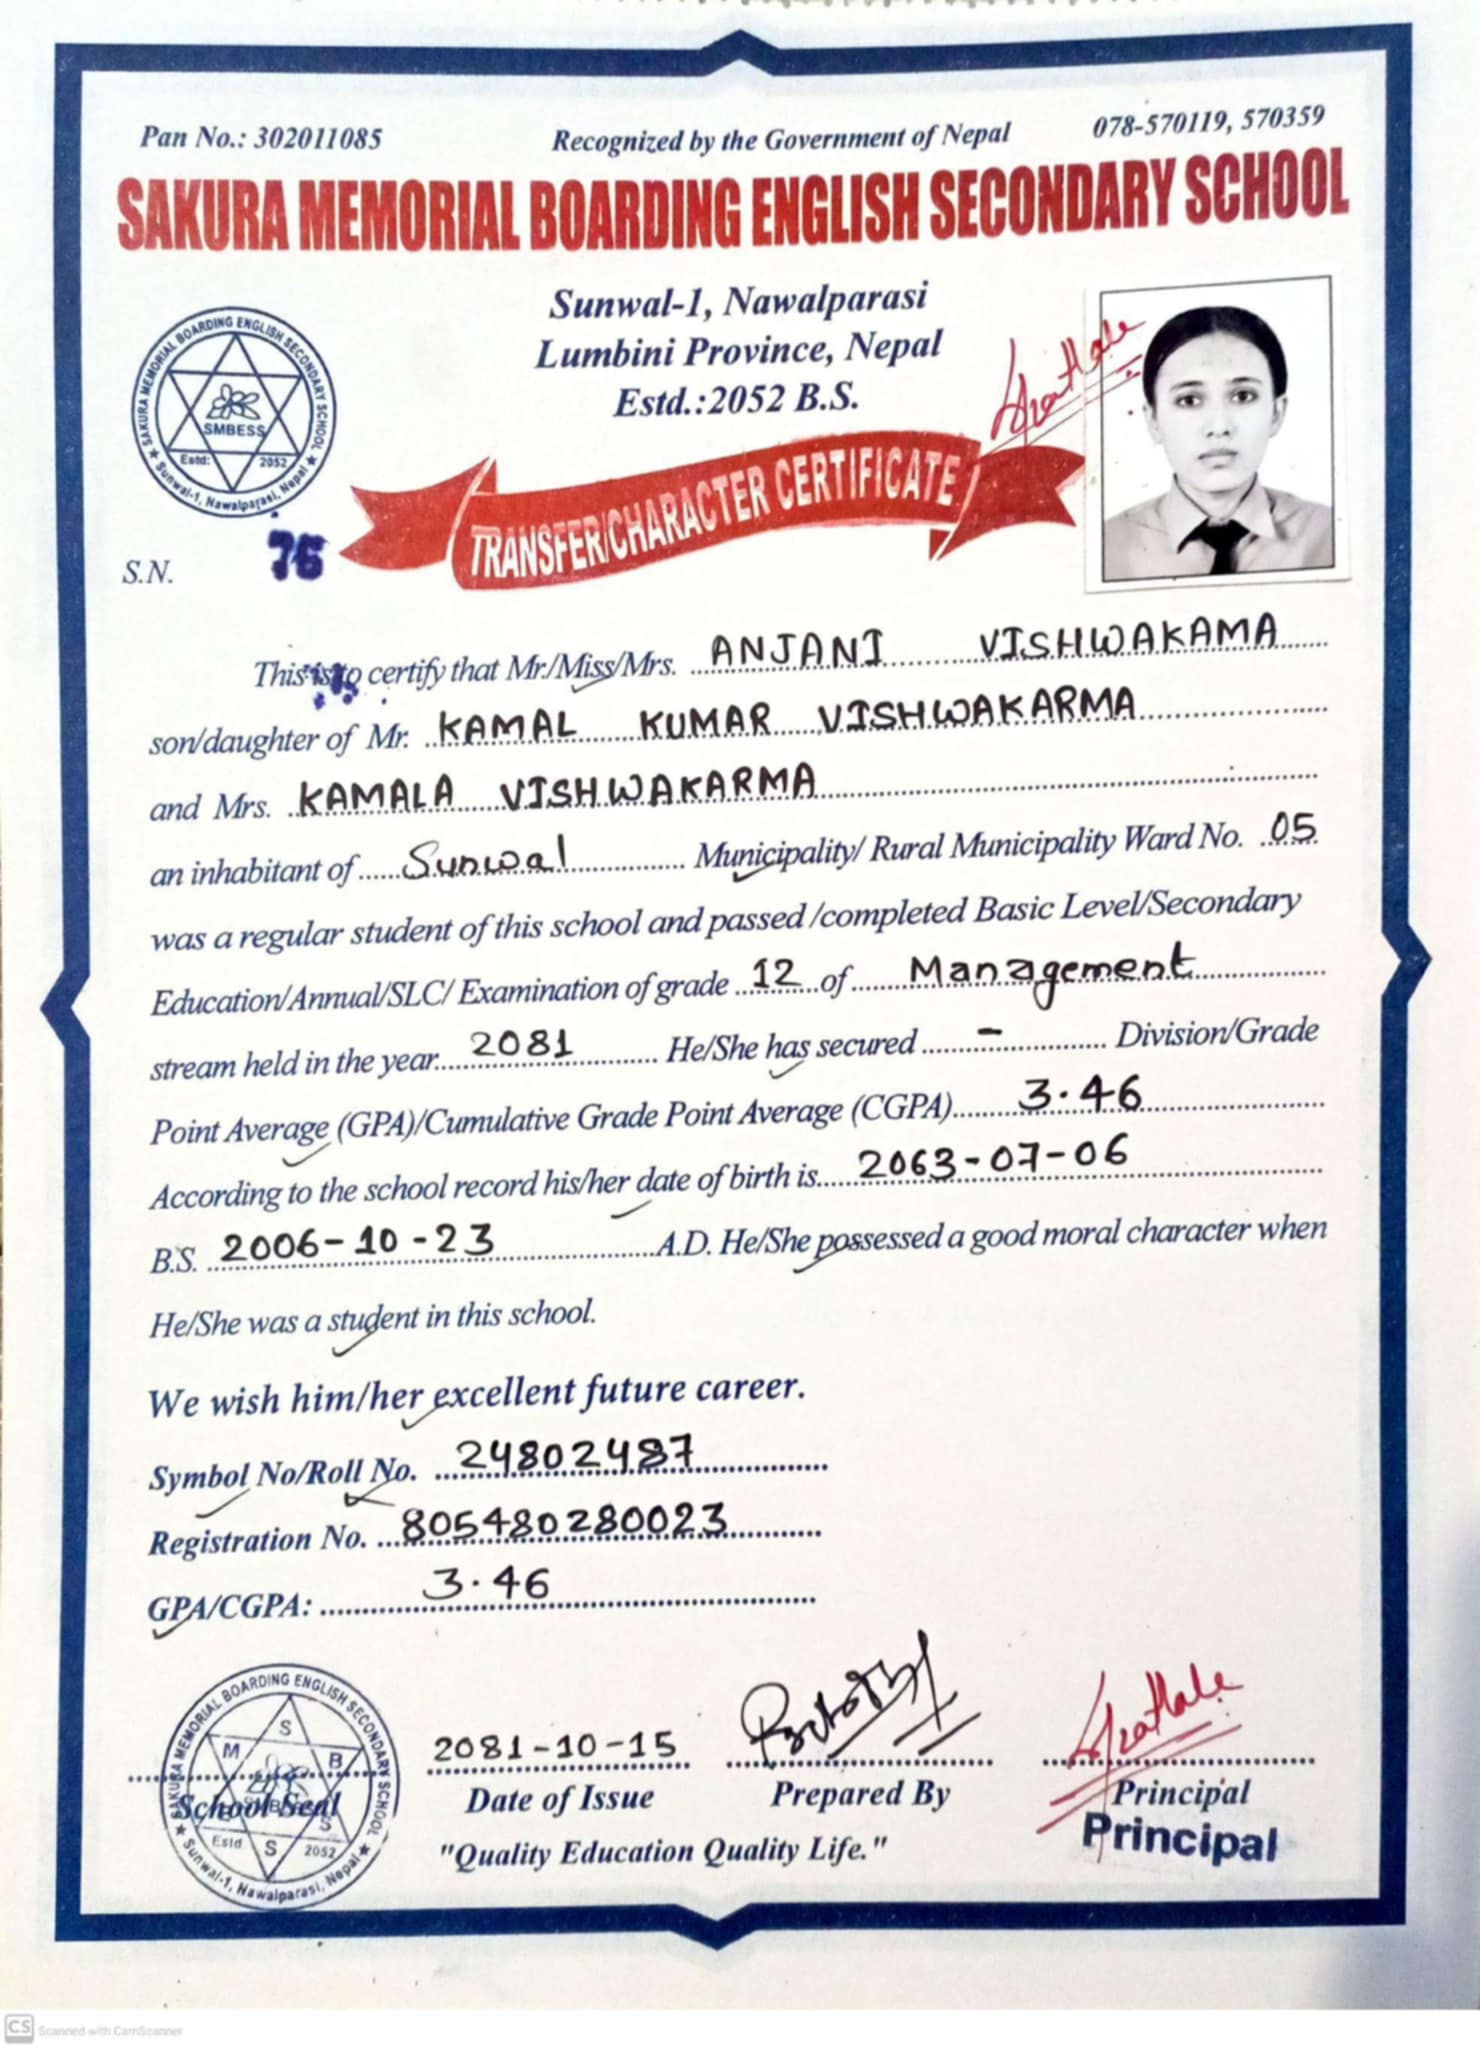 Pan No.: 302011085 Recognized by the Government of Nepal 078-570119, 570359
SAKURA MEMORIAL BOARDING ENGLISH SECONDARY SCHOOL
Sunwal-1, Nawalparasi
Lumbini Province, Nepal
Estd.:2052 B.S.
SAKURA MEMORIAL BOARDING ENGLISH SECONDARY SCHOOL
SMBESS
Estd: 2052
Sunwal-1, Nawalparasi, Nepal
TRANSFER/CHARACTER CERTIFICATE
S.N. 76
This is to certify that Mr./Miss/Mrs. ANJANI VISHWAKAMA
son/daughter of Mr. KAMAL KUMAR VISHWAKARMA
and Mrs. KAMALA VISHWAKARMA
an inhabitant of Sunwal Municipality/ Rural Municipality Ward No. 05
was a regular student of this school and passed /completed Basic Level/Secondary
Education/Annual/SLC/ Examination of grade 12 of Management
stream held in the year 2081 He/She has secured - Division/Grade
Point Average (GPA)/Cumulative Grade Point Average (CGPA) 3.46
According to the school record his/her date of birth is 2063-07-06
B.S. 2006-10-23 A.D. He/She possessed a good moral character when
He/She was a student in this school.
We wish him/her excellent future career.
Symbol No/Roll No. 24802487
Registration No. 805480280023
GPA/CGPA: 3.46
SAKURA MEMORIAL BOARDING ENGLISH SECONDARY SCHOOL
S
M B
S
Estd S 2052
Sunwal-1, Nawalparasi, Nepal
2081-10-15
School Seal Date of Issue Prepared By Principal
Principal
"Quality Education Quality Life."
CS Scanned with CamScanner